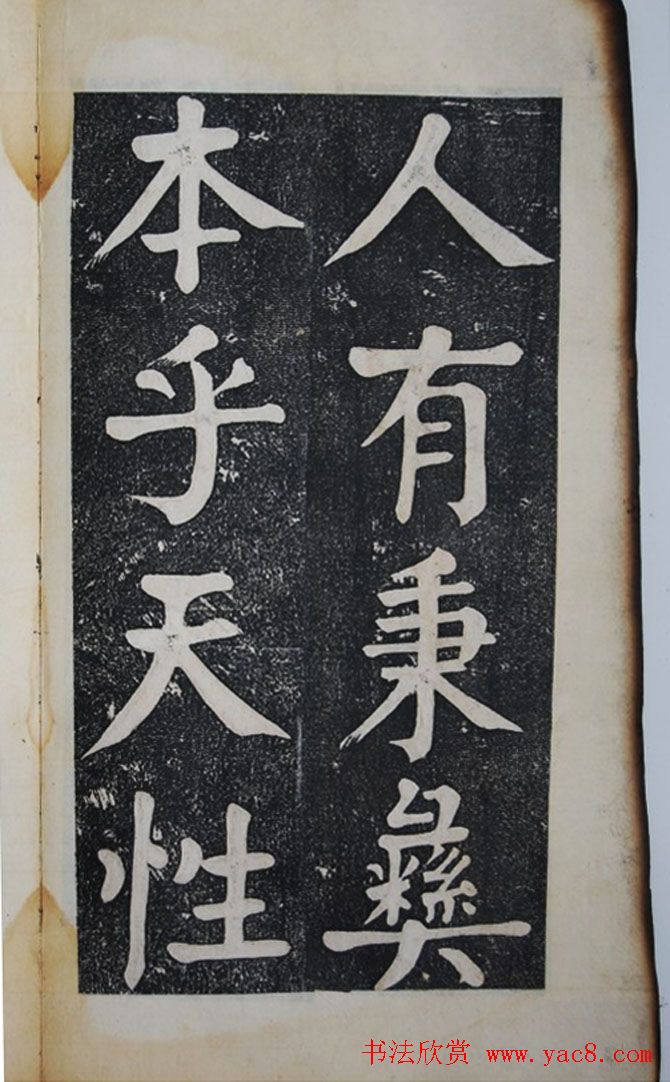 人有秉彝
本乎天性
书法欣赏 www.yac8.com